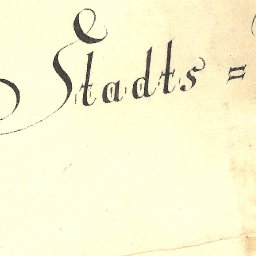 Stadts =